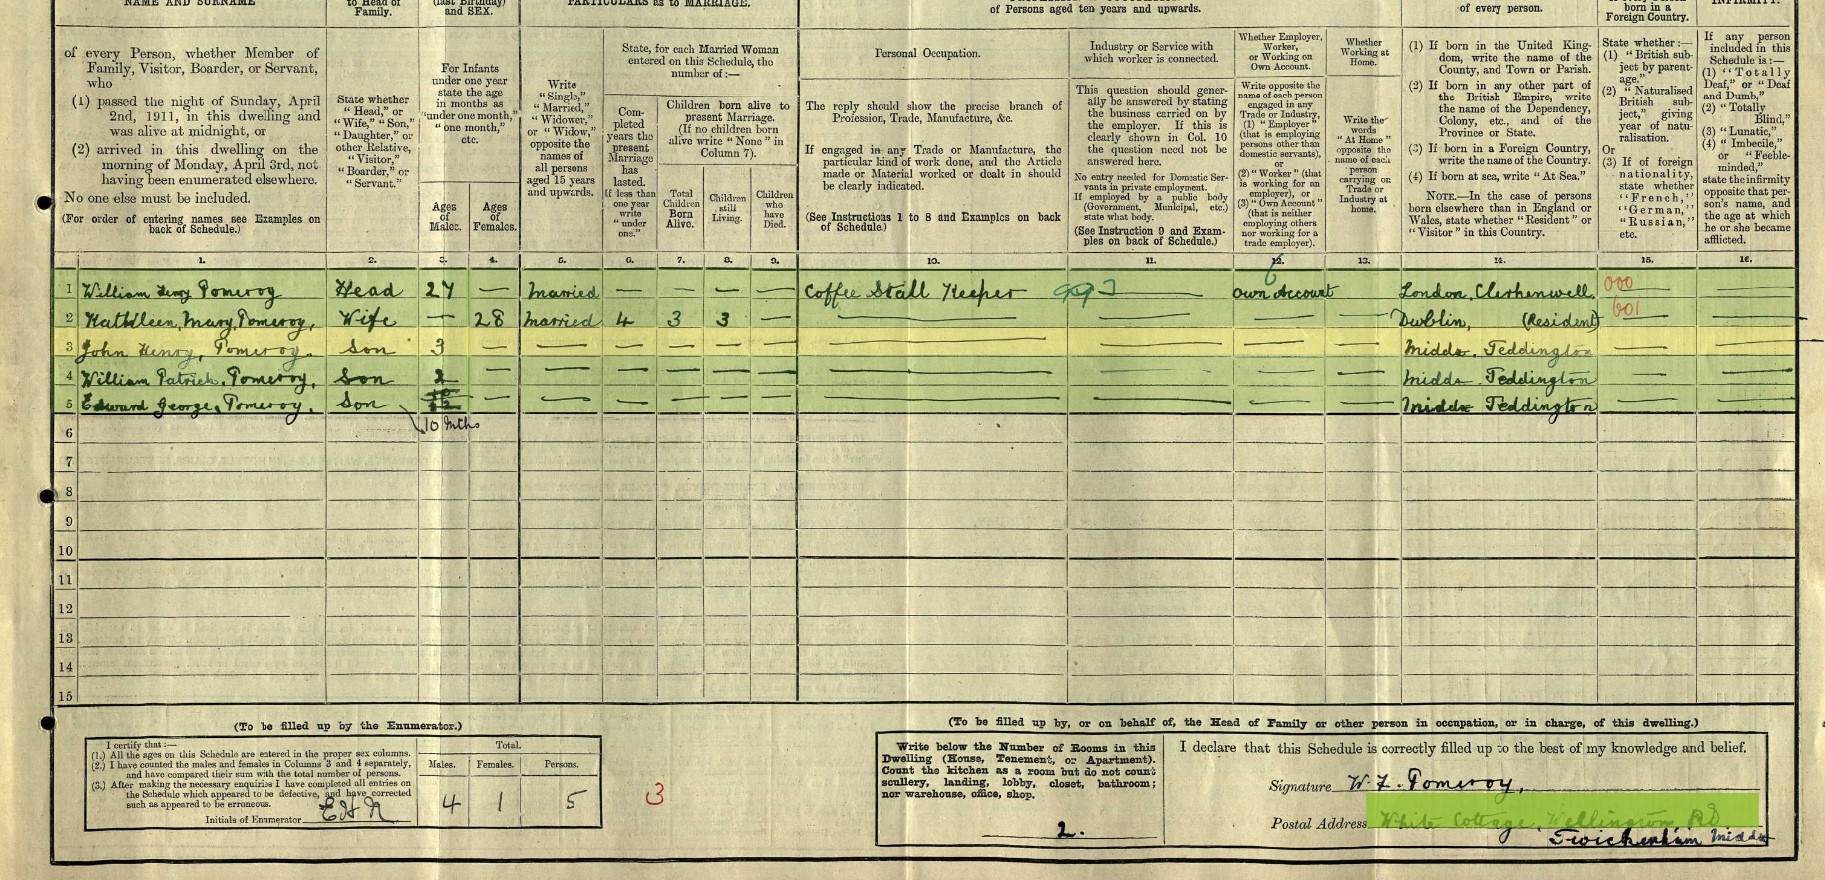 NAME AND SURNAME
to Head of Family.
(last Birthday) and SEX.
PARTICULARS as to MARRIAGE.
of Persons aged ten years and upwards.
of every person.
born in a Foreign Country.
INFIRMITY.
of every Person, whether Member of
Family, Visitor, Boarder, or Servant,
who
(1) passed the night of Sunday, April
2nd, 1911, in this dwelling and
was alive at midnight, or
(2) arrived in this dwelling on the
morning of Monday, April 3rd, not
having been enumerated elsewhere.
No one else must be included.
(For order of entering names see Examples on
back of Schedule.)
State whether
"Head," or
"Wife," "Son,"
"Daughter," or
other Relative,
"Visitor,"
"Boarder," or
"Servant."
For Infants
under one year
state the age
in months as
"under one month,"
"one month,"
etc.
Ages
of
Males.
Ages
of
Females.
Write
"Single,"
"Married,"
"Widower,"
or "Widow,"
opposite the
names of
all persons
aged 15 years
and upwards.
State, for each Married Woman
entered on this Schedule, the
number of:—
Com-
pleted
years the
present
Marriage
has
lasted.
If less than
one year
write
"under
one."
Children born alive to
present Marriage.
(If no children born
alive write "None" in
Column 7).
Total
Children
Born
Alive.
Children
still
Living.
Children
who
have
Died.
Personal Occupation.
The reply should show the precise branch of
Profession, Trade, Manufacture, &c.
If engaged in any Trade or Manufacture, the
particular kind of work done, and the Article
made or Material worked or dealt in should
be clearly indicated.
(See Instructions 1 to 8 and Examples on back
of Schedule.)
Industry or Service with
which worker is connected.
This question should gener-
ally be answered by stating
the business carried on by
the employer. If this is
clearly shown in Col. 10
the question need not be
answered here.
No entry needed for Domestic Ser-
vants in private employment.
If employed by a public body
(Government, Municipal, etc.)
state what body.
(See Instruction 9 and Exam-
ples on back of Schedule.)
Whether Employer,
Worker,
or Working on
Own Account.
Write opposite the
name of each person
engaged in any
Trade or Industry,
(1) "Employer"
(that is employing
persons other than
domestic servants),
or
(2) "Worker" (that
is working for an
employer), or
(3) "Own Account"
(that is neither
employing others
nor working for a
trade employer).
Whether
Working at
Home.
Write the
words
"At Home"
opposite the
name of each
person
carrying on
Trade or
Industry at
home.
(1) If born in the United King-
dom, write the name of the
County, and Town or Parish.
(2) If born in any other part of
the British Empire, write
the name of the Dependency,
Colony, etc., and of the
Province or State.
(3) If born in a Foreign Country,
write the name of the Country.
(4) If born at sea, write "At Sea."
NOTE.—In the case of persons
born elsewhere than in England or
Wales, state whether "Resident" or
"Visitor" in this Country.
State whether:—
(1) "British sub-
ject by parent-
age."
(2) "Naturalised
British sub-
ject," giving
year of natu-
ralisation.
Or
(3) If of foreign
nationality,
state whether
"French,"
"German,"
"Russian,"
etc.
If any person
included in this
Schedule is:—
(1) "Totally
Deaf," or "Deaf
and Dumb,"
(2) "Totally
Blind,"
(3) "Lunatic,"
(4) "Imbecile,"
or "Feeble-
minded,"
state the infirmity
opposite that per-
son's name, and
the age at which
he or she became
afflicted.
1. 2. 3. 4. 5. 6. 7. 8. 9. 10. 11. 12. 13. 14. 15. 16.
6
1 William Henry Pomeroy Head 27 — Married — — — — Coffee Stall Keeper — own Account — London, Clerkenwell. 000
2 Kathleen, Mary, Pomeroy, Wife — 28 Married 4 3 3 — — — — — Dublin, (Resident) 601 —
3 John Henry, Pomeroy. Son 3 — — — — — — — — — — Midds. Teddington — —
4 William Patrick, Pomeroy, Son 2 — — — — — — — — — — Midds Teddington — —
5 Edward George, Pomeroy, Son — — — — — — — — — — Midds Teddington — —
10 mths
6
7
8
9
10
11
12
13
14
15
(To be filled up by the Enumerator.)
I certify that:—
(1.) All the ages on this Schedule are entered in the proper sex columns.
(2.) I have counted the males and females in Columns 3 and 4 separately,
and have compared their sum with the total number of persons.
(3.) After making the necessary enquiries I have completed all entries on
the Schedule which appeared to be defective, and have corrected
such as appeared to be erroneous.
Initials of Enumerator EHN
Total.
Males. Females. Persons.
4 1 5
3
(To be filled up by, or on behalf of, the Head of Family or other person in occupation, or in charge, of this dwelling.)
Write below the Number of Rooms in this
Dwelling (House, Tenement, or Apartment).
Count the kitchen as a room but do not count
scullery, landing, lobby, closet, bathroom;
nor warehouse, office, shop.
2.
I declare that this Schedule is correctly filled up to the best of my knowledge and belief.
Signature W. H. Pomeroy,
Postal Address White Cottage, Wellington Rd
Twickenham Midds